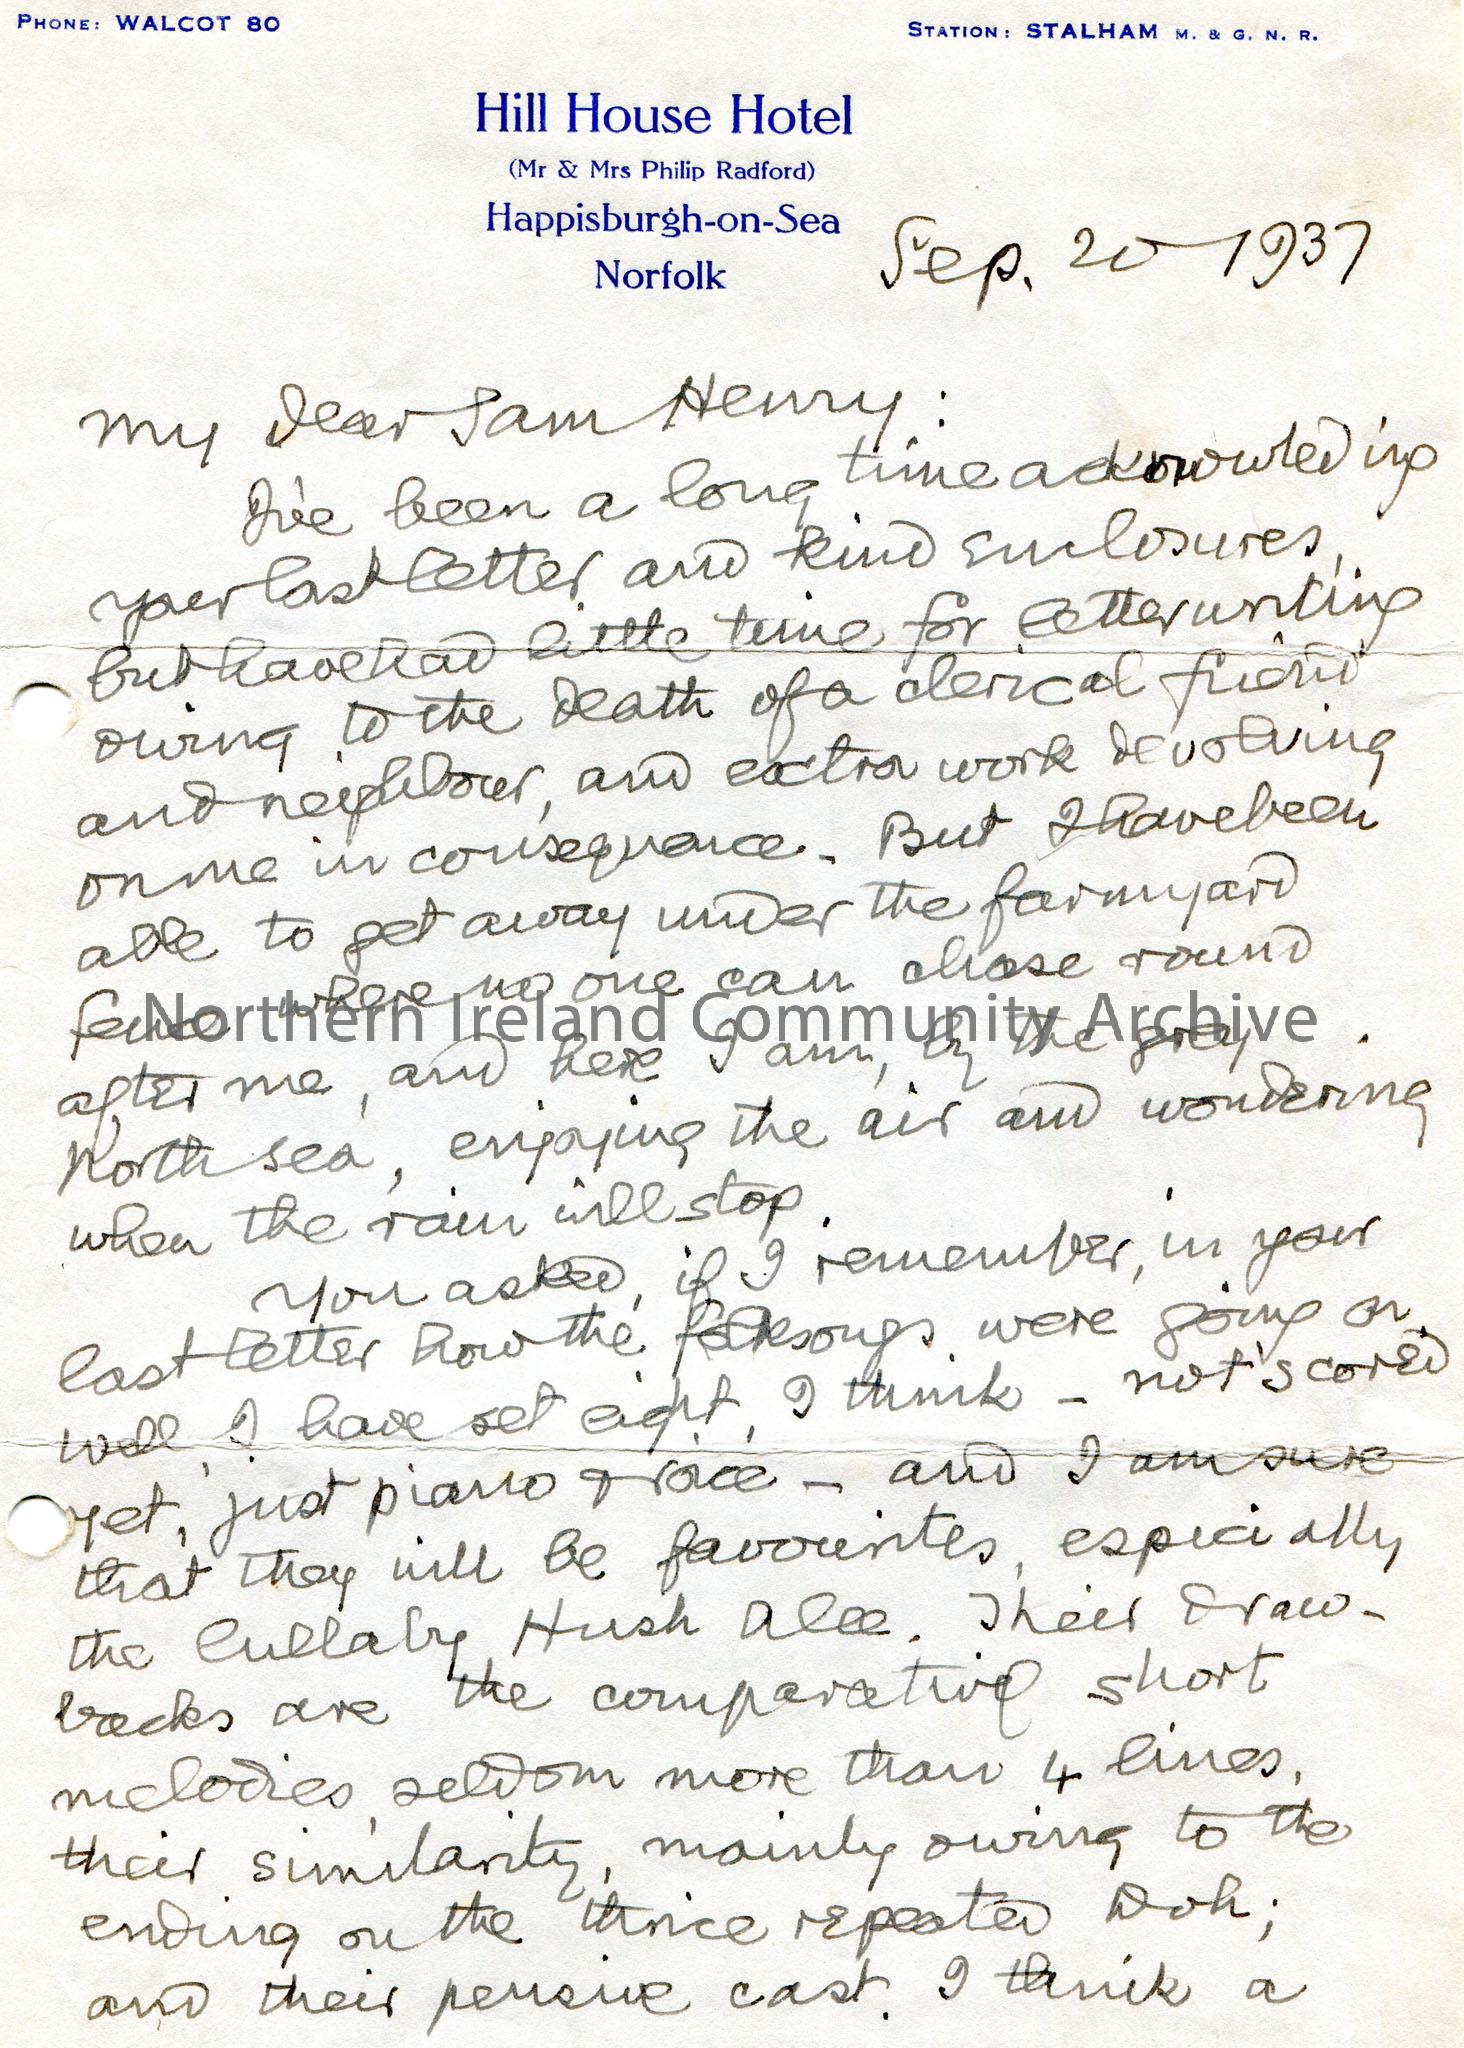 PHONE: WALCOT 80
STATION: STALHAM M. & G. N. R.
Hill House Hotel
(Mr & Mrs Philip Radford)
Happisburgh-on-Sea
Norfolk
Sep. 20 1937
My Dear Sam Henry:
I've been a long time acknowleding
your last letter and kind enclosures,
but have had little time for letter writing
owing to the death of a clerical friend
and neighbour, and extra work devolving
on me in consequence. But I have been
able to get away under the farmyard
fence where no one can chase round
after me, and here I am, by the grey
North sea, enjoying the air and wondering
when the rain will stop.
You asked, if I remember, in your
last letter how the folksongs were going on.
Well, I have set eight, I think - not scored
yet, just piano & voice - and I am sure
that they will be favourites, especially
the lullaby Hush Alee. Their draw-
backs are the comparative short
melodies, seldom more than 4 lines,
their similarity, mainly owing to the
ending on the thrice repeated Doh;
and their pensive cast. I think a
Northern Ireland Community Archive